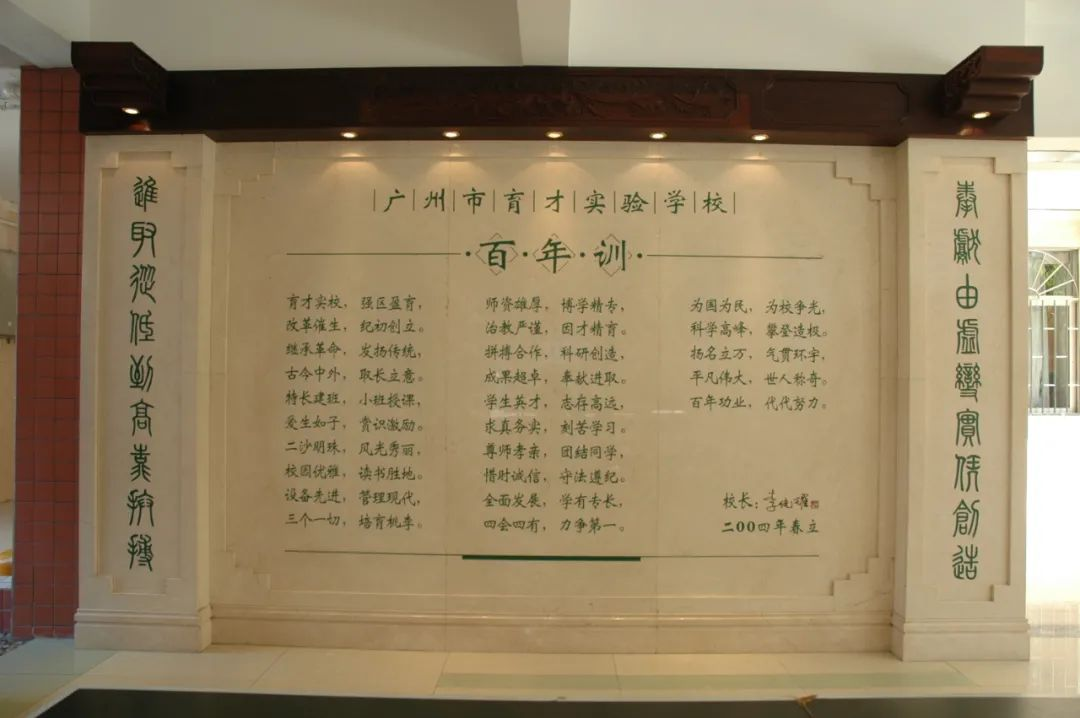 進取從低到高靠拼搏
广州市育才实验学校
·百·年·训·
育才实校，强区盈育，
改革催生，纪初创立。
继承革命，发扬传统，
古今中外，取长立意。
特长建班，小班授课，
爱生如子，赏识激励。
二沙明珠，风光秀丽，
校园优雅，读书胜地。
设备先进，管理现代，
三个一切，培育桃李。
师资雄厚，博学精专，
治教严谨，因才精育。
拼搏合作，科研创造，
成果超卓，奉献进取。
学生英才，志存高远，
求真务实，刻苦学习。
尊师孝亲，团结同学，
惜时诚信，守法遵纪。
全面发展，学有专长，
四会四有，力争第一。
为国为民，为校争光，
科学高峰，攀登造极。
扬名立万，气贯环宇，
平凡伟大，世人称奇。
百年功业，代代努力。
校长：李
二〇〇四年春立
奉獻由虛變實凭創造